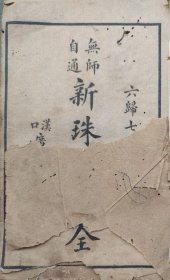 六歸七
無師
自通
新珠
全
漢
口